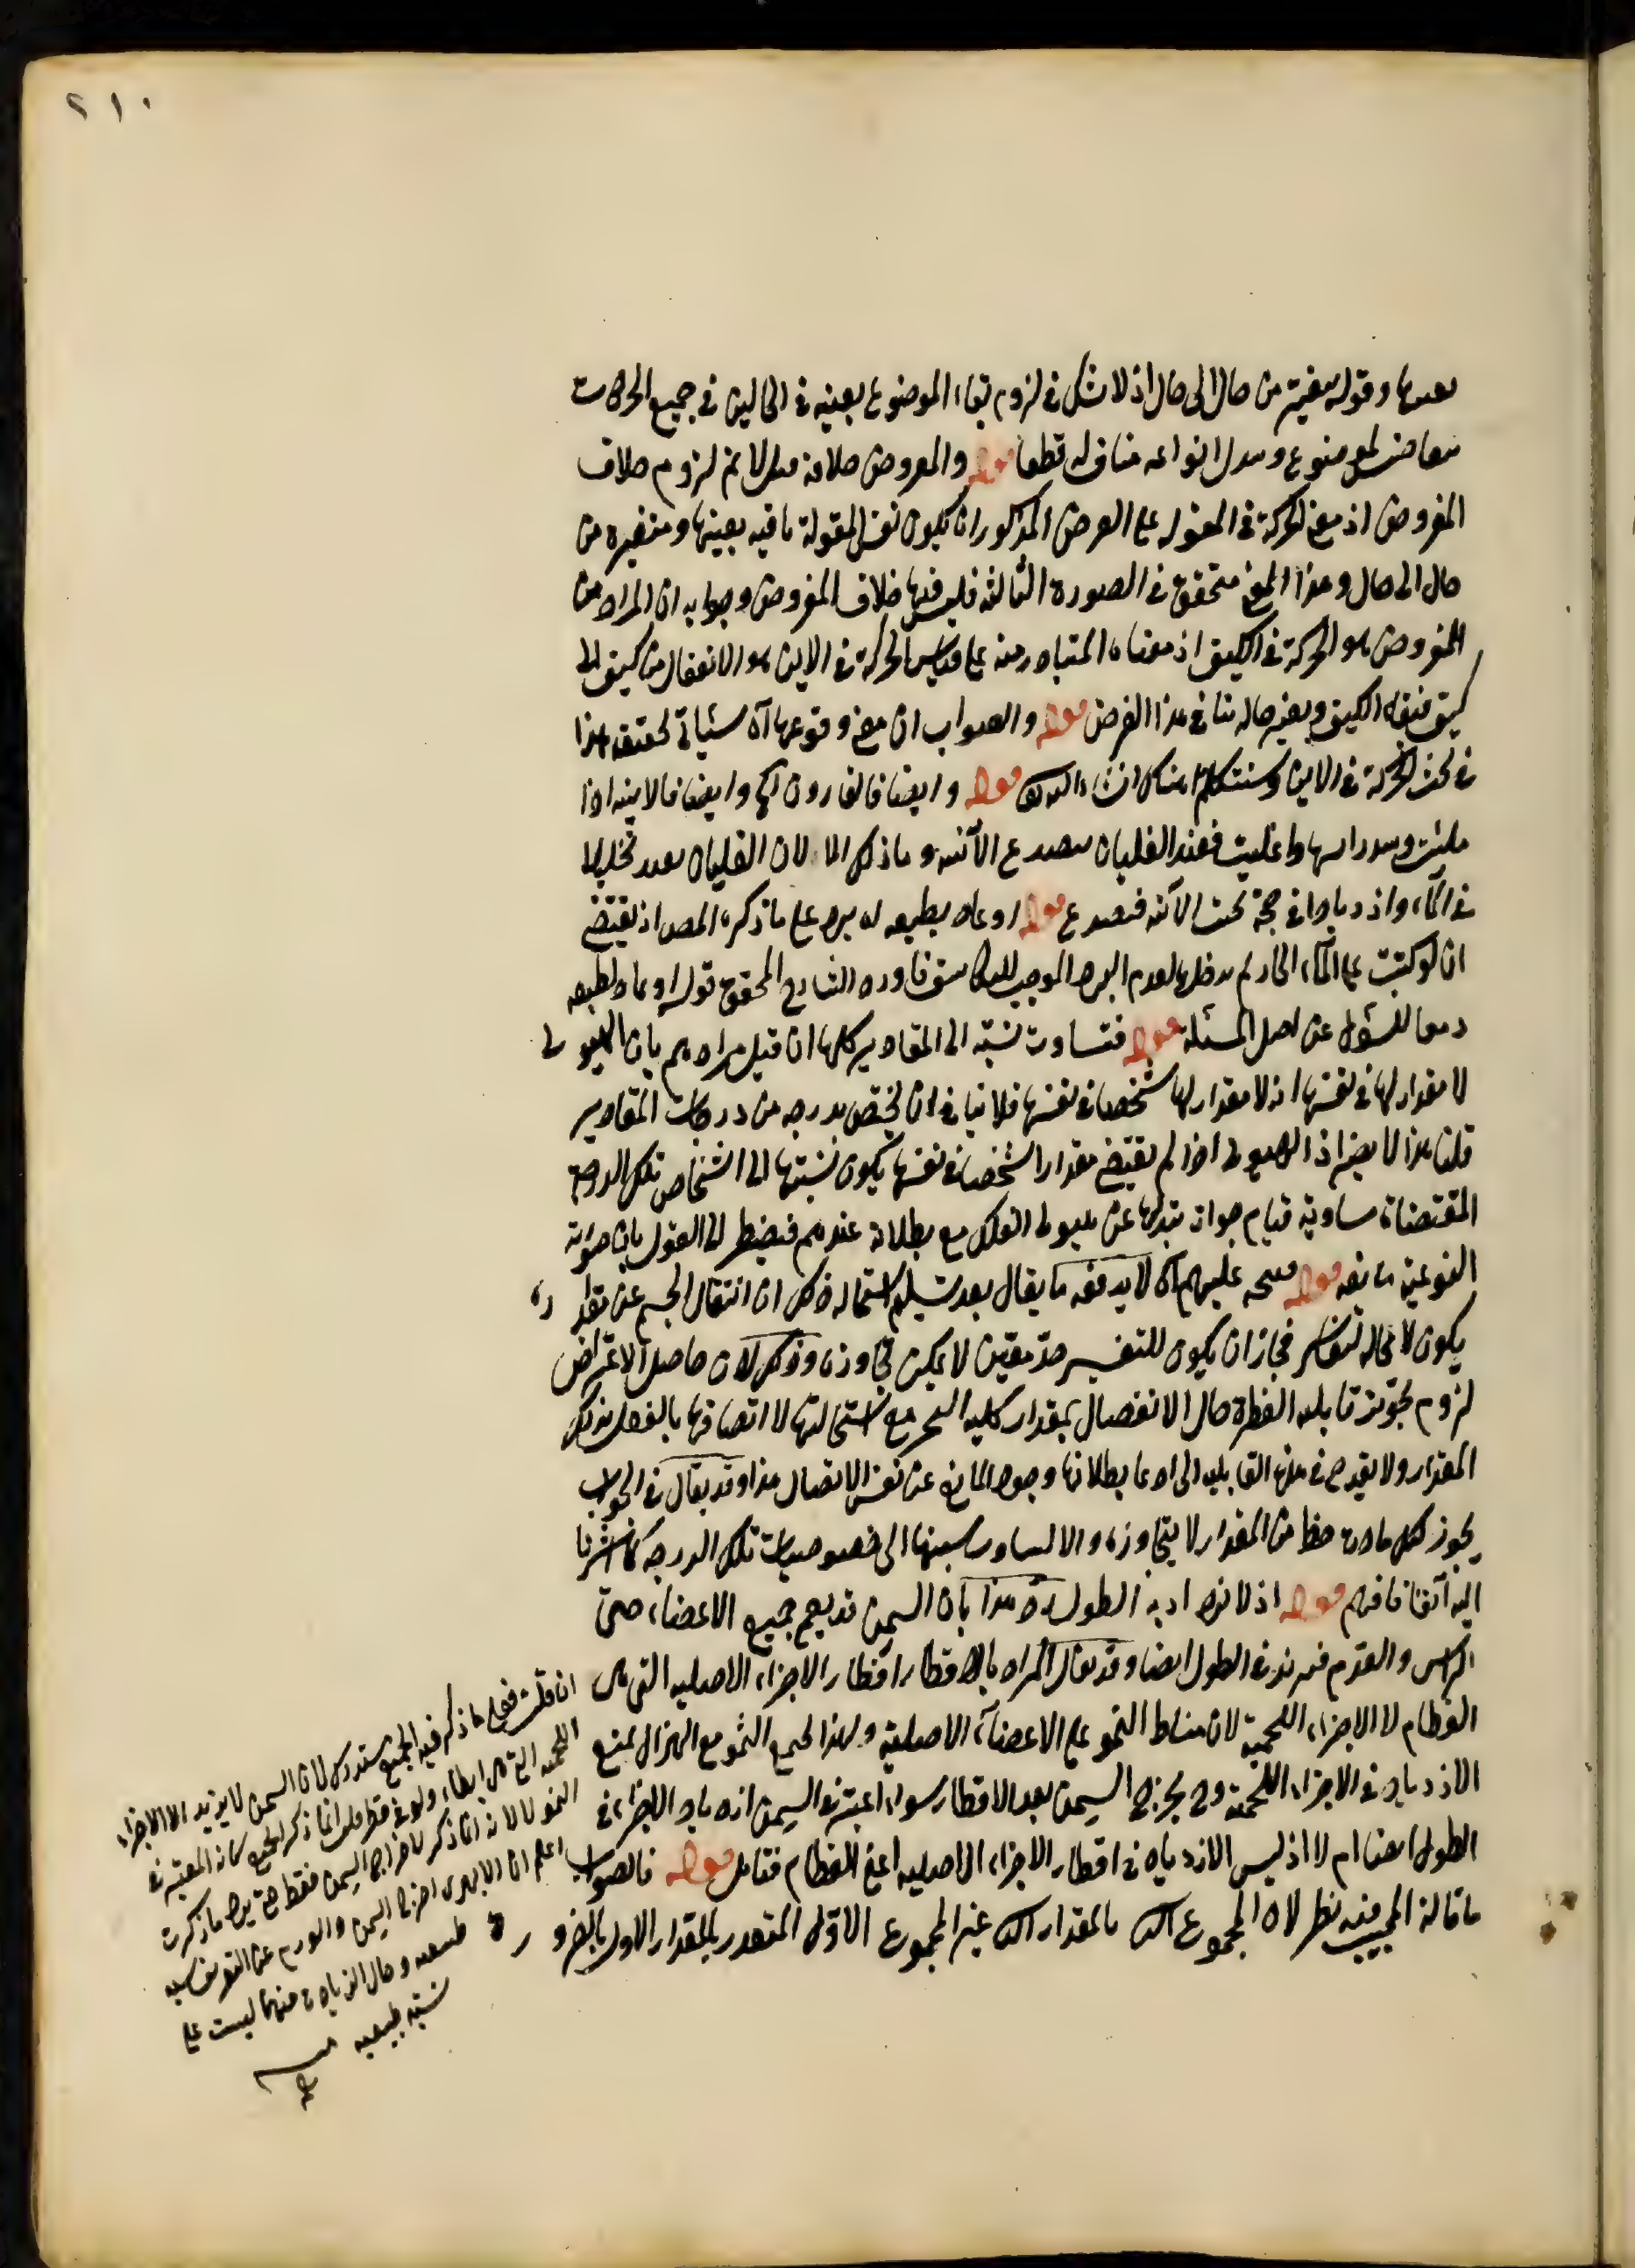 ٢١٠
بعينها وقوله متغيرة من حال الى حال اذ لا شك في لزوم بقاء الموضوع بعينه في الحالين في جميع الحركات
للموضوع وتبدل انواعه مناف له قطعا قوله والمفروض خلافه لا يتم لزوم خلاف
المفروض اذ معنى الحركة في المقولة على الفرض المذكور ان يكون نفس المقولة باقية بعينها ومتغيرة من
حال الى حال وهذا المعنى متحقق في الصورة الثالثة فليس فيها خلاف المفروض وجوابه ان المراد من
المفروض هو الحركة في الكيف اذ معناه المتبادر منه على قياس الحركة في الاين هو الانتقال من كيف الى
كيف فبقاء الكيف وتغير حاله ينافي هذا الفرض قوله والصواب ان معنى وقوعها آه سيأتي تحقيق هذا
في بحث الحركة في الاين وسنتكلم هناك ان شاء الله تعالى قوله وايضا فالقارورة آه وايضا فالانية اذا
ملئت وسد راسها واغليت فعند الغليان تنصدع الآنية وما ذلك الا لان الغليان يفيد تخلخلا
في الماء وازديادا في حجمه فتنصدع قوله او عاد بطبعه يرد على ما ذكره المص اذ يقتضي
ان لو كبت على الماء الحار لم يدخلها لعدم البرد الموجب للتكاثف فاورد الشارح المحقق قوله او عاد بطبعه
دفعا للسؤال عن اصل المسئلة قوله فتساوت نسبته الى المقادير كلها ان قيل مرادهم بان الهيولى
لا مقدار لها في نفسها انه لا مقدار لها شخصا في نفسها فلا ينافي ان يختص بدرجة من درجات المقادير
قلنا هذا لا يضر اذ الهيولى اذا لم يقتض مقدارا شخصا في نفسها يكون نسبتها الى اشخاص تلك الدرجة
المقتضاة مساوية قيام جواز تبدلها عن هيولى الفلك مع بطلانه عندهم فيضطر الى القول بان صورته
النوعية مانعة قوله عليهم آه لا يدفعه ما يقال بعد تسليم استحالة ذلك ان انتقال الجسم عن مقداره
يكون لا محالة لقاسر فجاز ان يكون للتغير حد معين لا يمكن تجاوزه وذلك لان حاصل الاعتراض
لزوم تجويز قابلية القطرة حال الانفصال بمقدار كلية البحر مع استحالتها لا اتصافها بالفعل بذلك
المقدار ولا يقدح في هذه القابلية التي ادعا بطلانها وجود المانع عن نفس الاتصال هذا وقد يقال في الجواب
يجوز لكل مادة حظ من المقدار لا يتجاوزه والا لتساوت نسبتها الى خصوصيات تلك الدرجة كما اشرنا
اليه آنفا فافهم قوله اذ لا يزداد به الطول رد هذا بان السمن قد يعم جميع الاعضاء حتى
الراس والقدم فيزيد في الطول ايضا وقد يقال المراد بالاقطار اقطار الاجزاء الاصلية التي هي
العظام لا الاجزاء اللحمية لان مناط النمو على الاعضاء الاصلية ولهذا يجتمع النمو مع الهزال يمنع
الازدياد في الاجزاء اللحمية وح يخرج السمن بقيد الاقطار سواء اعتبر في السمن ازدياد الاجزاء في
الطول ايضا ام لا اذ ليس الازدياد في اقطار الاجزاء الاصلية اعني العظام فتامل قوله فالصواب
ما قاله المجيب فيه نظر لان المجموع بالمقدار غير المجموع الاول المتقدر بالمقدار الاول بالضرورة
ان قلت فعلى ما ذكر قيد الجميع مستدرك لان السمن لا يزيد الا الاجزاء
اللحمية ولو في قطر قلت انما ذكر الجميع لانه المعتبر في
النمو لا لانه انما ذكر لاخراج السمن فقط حتى يرد ما ذكرت
اعلم ان الابهري اخرج السمن والورم عن التعريف بنسبة
طبيعية وقال الزيادة فيهما ليست على
نسبة طبيعية منه